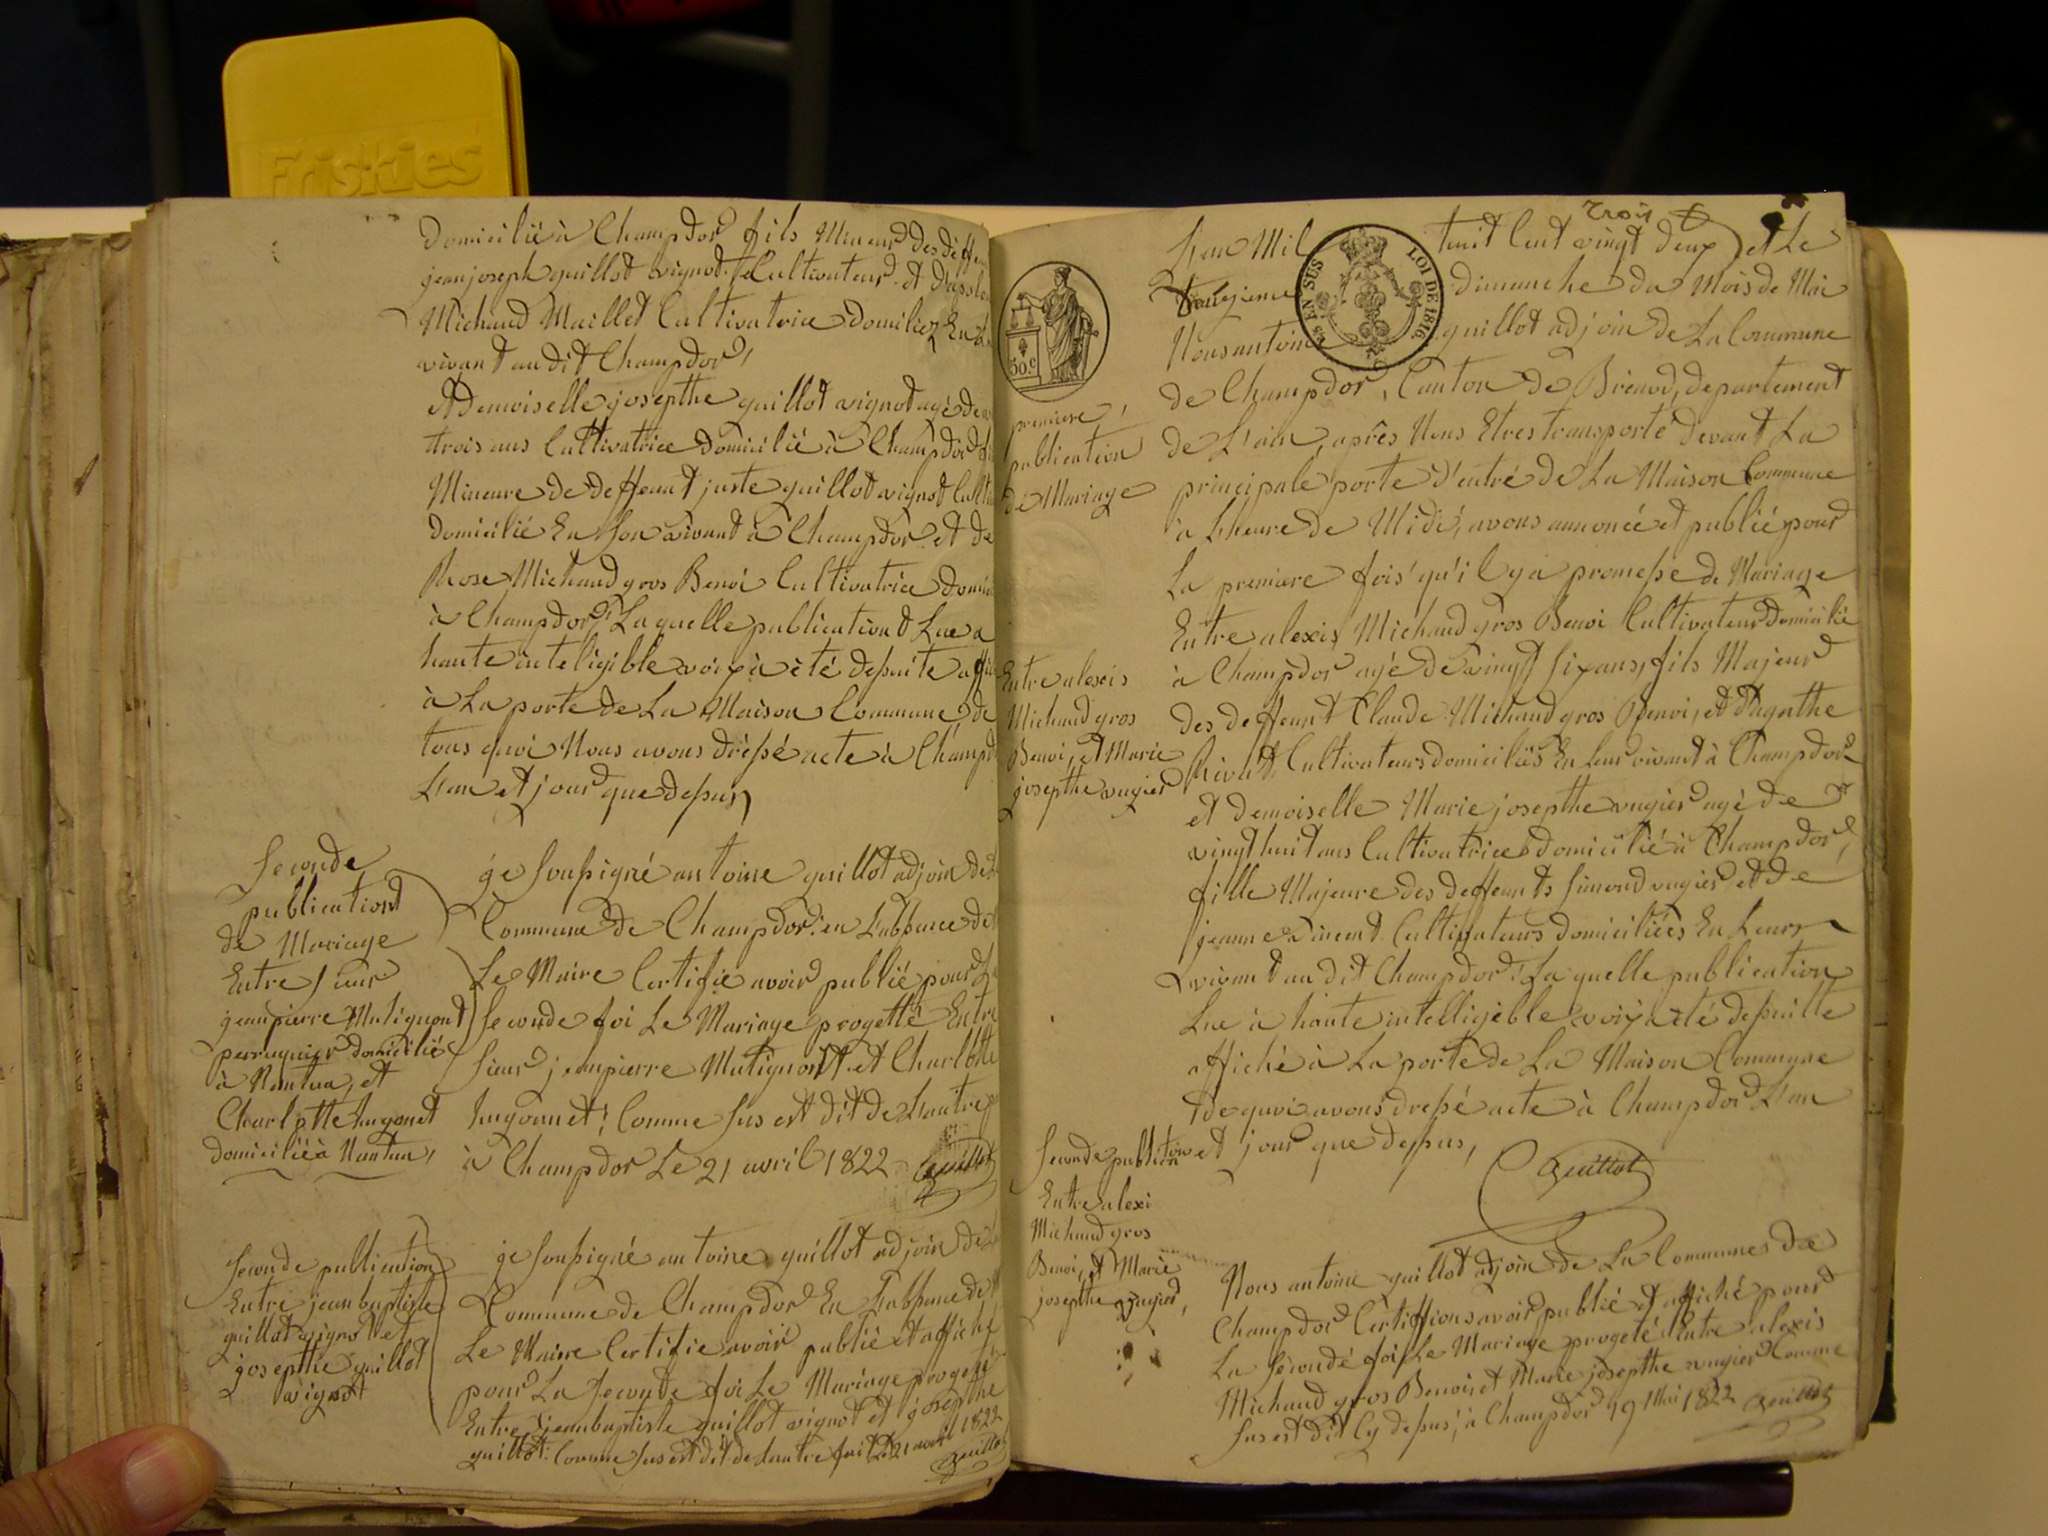 Friskies
domicilié à Champdor fils Mineur des deffeu
jeanjoseph guillot vignot Cultivateur et
Michaud Maillet Cultivatrice domiliez En
vivant audit Champdor,
et demoiselle josepthe guillot vignot agé de
trois ans Cultivatrice domicilié à Champdor
Mineure de deffeunt juste guillot vignot Cultiv
domicilié En Son vivant à Champdor et de
Rose Michaud gros Benoi Cultivatrice domic
à Champdor, Laquelle publication Lue a
haute inteligible voix à été depuite affi
à La porte de La Maison Commune, de
tous quoi Nous avons drèssé acte à Champd
L'an et jour que dessus,
Seconde
publication
de Mariage
Entre Sieur
jeanpierre Mutignont
perruquier domicilié
à Nantua, et
Charlotte hugonet
domicilié à Nantua,
je Soussigné antoine guillot adjoin de
Commune de Champdor en L'absance de
Le Maire Certifie avoir publié pour
Seconde foi Le Mariage progetté Entre
Sieur jeanpierre Mutignont et Charlotte
hugonnet, Comme Sus est dit de Lautre
à Champdor Le 21 avril 1822 Guillot
Seconde publication
Entre jean baptiste
guillot vignot et
josepthe guillot
vignot
je Soussigné antoine guillot adjoin de
Commune de Champdor En L'absance de
Le Maire Certifie avoir publié et affiché
pour La Seconde foi Le Mariage progetté
Entre jeanbaptiste guillot vignot et josepthe
guillot Comme Sus est dit de Lautre fait Le 21 avril 1822
Guillot
trois
50.c
ES EN SUS LOI DE 1816
premiere,
publication
de Mariage
Entre alexis
Michaud gros
Benoi, et Marie
josepthe vugier
L'an Mil huit Cent vingt deux et Le
douzieme dimanche du Mois de Mai
Nous antoine guillot adjoin de La Commune
de Champdor, Canton de Brenod, departement
de L'ain, après Nous Etres transporté devant La
principale porte d'entré de La Maison Commune
à Lheure de Midi, avons annoncé et publié pour
La premiere fois qu'il y a promesse de Mariage
Entre alexis Michaud gros Benoi Cultivateur domicilié
à Champdor agé de vingt Six ans, fils Majeur
des deffeunt Claude Michaud gros Benoi, et d'agathe
Rivat, Cultivateurs domiciliés En Leur vivant à Champdor
et demoiselle Marie josepthe vugier agé de
vingt huit ans Cultivatrice domicilié à Champdor,
fille Majeure des deffeunts Simond vugier et de
jeanne vincent Cultivateurs domiciliées En Leurs
vivant audit Champdor, Laquelle publication
Lue à haute intelligible voix a été depuitte
affiché à La porte de La Maison Commune
de quoi avons dressé acte à Champdor L'an
et jour que dessus,
Guillot
Seconde publication
Entre alexi
Michaud gros
Benoi, et Marie
josepthe Vugier,
Nous antoine guillot adjoin de La Communes de
Champdor Certiffions avoir publié et affiché pour
La Seconde foi Le Mariage progeté Entre alexis
Michaud gros Benoi et Marie josepthe vugier Comme
Sus est dit Cy dessus, à Champdor 19 Mai 1822 Guillot